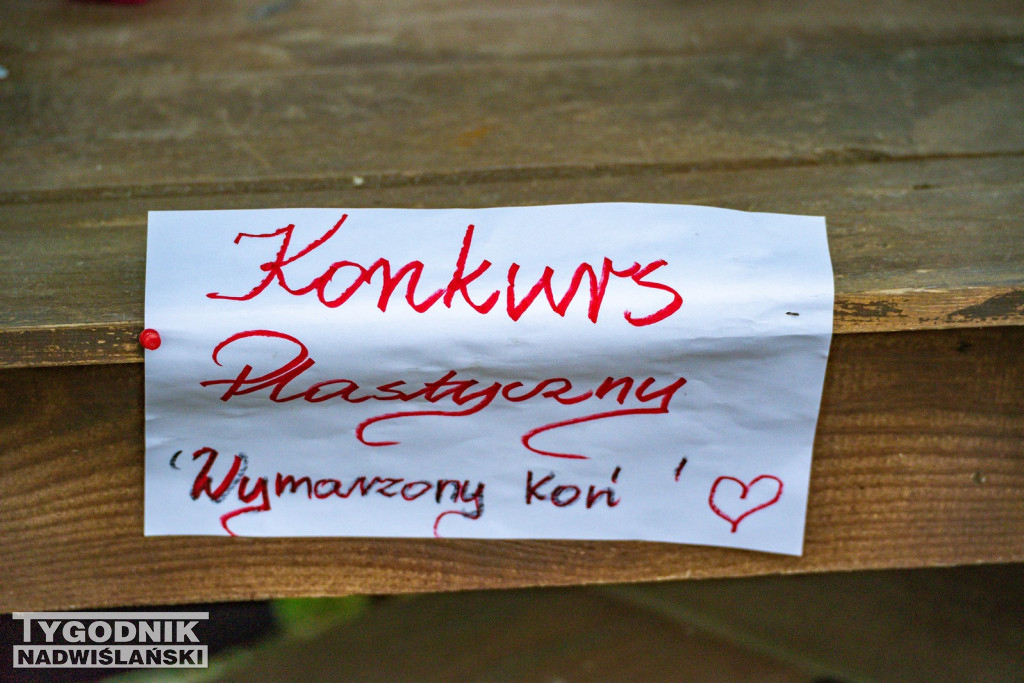 Konkurs
Plastyczny
'Wymarzony Koń'
TYGODNIK
NADWIŚLAŃSKI